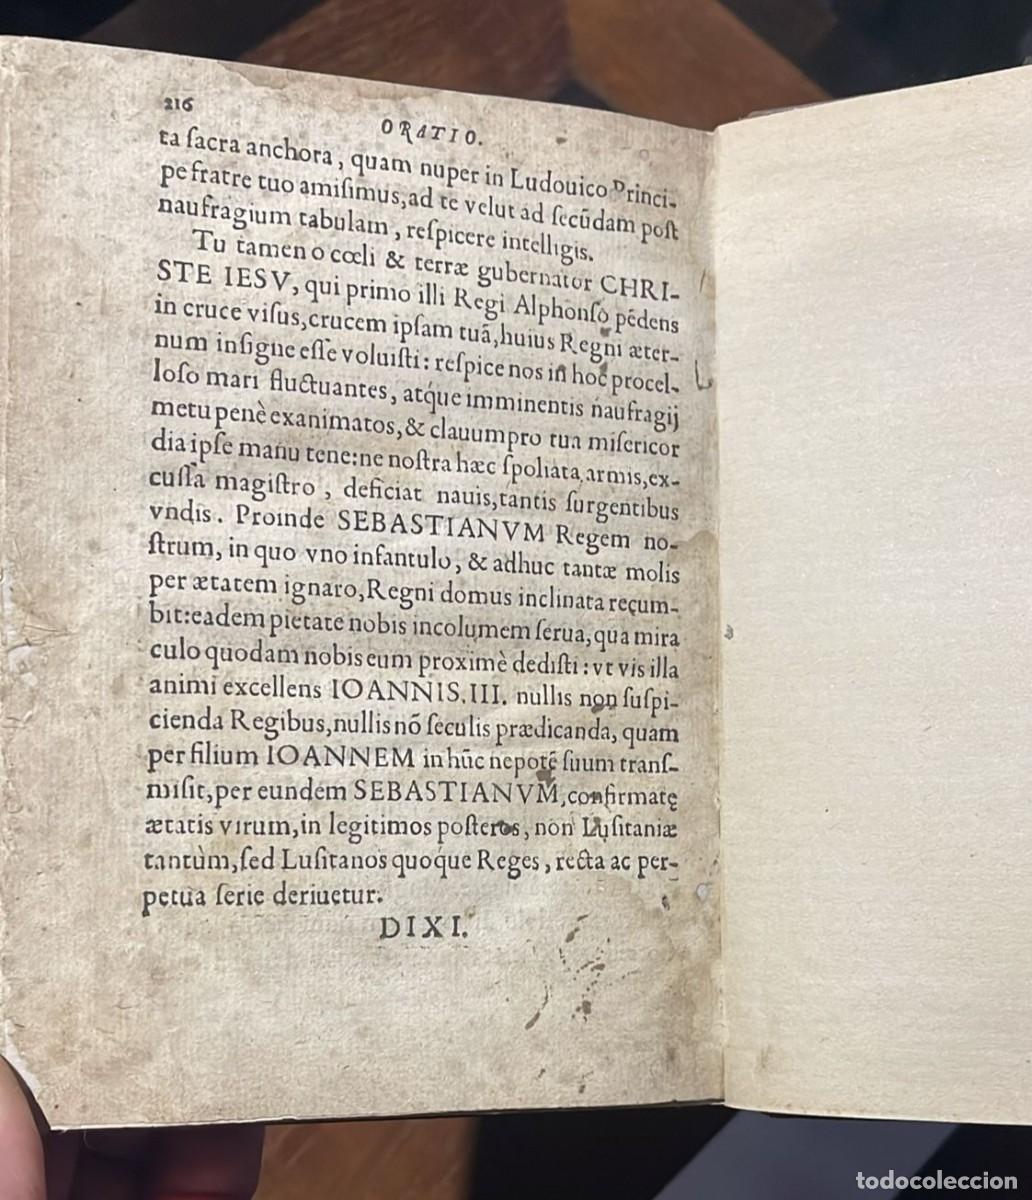 216
ORATIO.
ta ſacra anchora, quam nuper in Ludouico Princi-
pe fratre tuo amiſimus,ad te velut ad ſecũdam poſt
naufragium tabulam, reſpicere intelligis.
Tu tamen o cœli & terræ gubernator CHRI-
STE IESV, qui primo illi Regi Alphonſo pẽdens
in cruce viſus,crucem ipſam tuã,huius Regni æter-
num inſigne eſſe voluiſti: reſpice nos in hoc procel-
loſo mari fluctuantes, atq́ue imminentis naufragij
metu penè exanimatos,& clauum pro tua miſericor
dia ipſe manu tene:ne noſtra hæc ſpoliata armis,ex-
cuſſa magiſtro, deficiat nauis,tantis ſurgentibus
vndis. Proinde SEBASTIANVM Regem no-
ſtrum, in quo vno infantulo, & adhuc tantæ molis
per ætatem ignaro,Regni domus inclinata recum-
bit:eadem pietate nobis incolumem ſerua, qua mira
culo quodam nobis eum proximè dediſti: vt vis illa
animi excellens IOANNIS.III. nullis non ſuſpi-
cienda Regibus,nullis nõ ſeculis prædicanda, quam
per filium IOANNEM in hũc nepotẽ ſuum tranſ-
miſit,per eundem SEBASTIANVM,confirmatę
ætatis virum,in legitimos poſteros, non Luſitaniæ
tantùm,ſed Luſitanos quoque Reges, recta ac per-
petua ſerie deriuetur.
DIXI.
todocoleccion